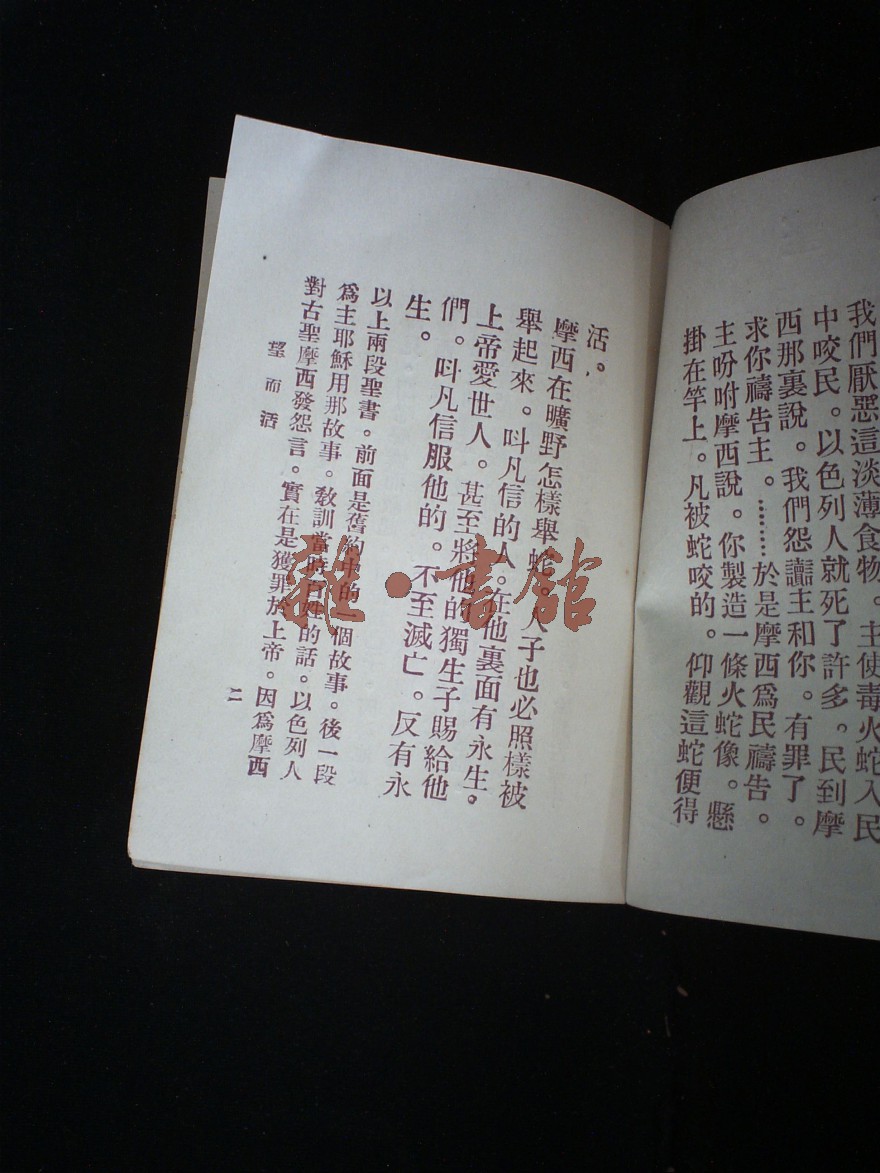 我們厭惡這淡薄食物。主使毒火蛇入民
中咬民。以色列人就死了許多。民到摩
西那裏說。我們怨讟主和你。有罪了。
求你禱告主。………於是摩西爲民禱告。
主吩咐摩西說。你製造一條火蛇像。懸
掛在竿上。凡被蛇咬的。仰觀這蛇便得
活。
摩西在曠野怎樣舉蛇。人子也必照樣被
舉起來。呌凡信的人。在他裏面有永生。
上帝愛世人。甚至將他的獨生子賜給他
們。呌凡信服他的。不至滅亡。反有永
生。
以上兩段聖書。前面是舊約中的一個故事。後一段
爲主耶穌用那故事。敎訓當時百姓的話。以色列人
對古聖摩西發怨言。實在是獲罪於上帝。因爲摩西
望而活
二
雜·書館